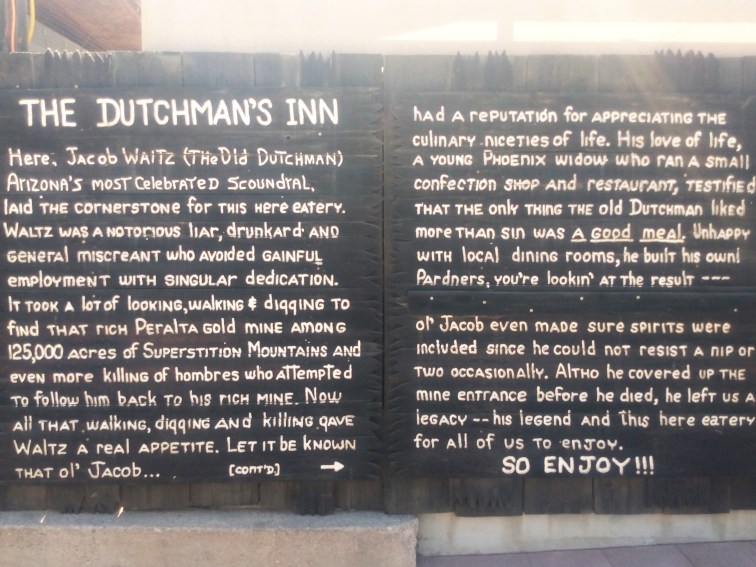 THE DUTCHMAN'S INN
Here, JACOB WAITZ (THE Old DUTCHMAN)
ARIZONA'S MOST CELEBRATED SCOUNDRAL,
laid THE CORNERSTONE for THIS HERE EATERY.
WALTZ WAS A NOTORIOUS liar, drunkard AND
GENERAL miscreant who AVOIDED GAINFUL
employment WITH SINGULAR dedication.
IT TOOK A lot of looking, walking & digging TO
find THAT rich Peralta gold mine AMONG
125,000 acres of SUPERSTITION MOUNTAINS AND
even more killing of hombres who ATTEMPTED
TO follow him back to his rich mine. Now
all THAT walking, digging AND killing gave
WALTZ A real APPETITE. LET IT BE KNOWN
THAT ol' JACOB...
[CONT'D] →
had A rePUTATION for APPRECIATING THE
culinary niceties of life. His love of life,
A young PHOENIX widow who ran A small
confection shop and restaurant, TESTIFIED
THAT THE only THING THE old DUTCHMAN liked
more than sin was A good meal. Unhappy
with local dining rooms, he built his own!
Pardners, you're lookin' AT THE result ---
ol' JACOB even made sure spirits were
included since he could not resist A nip or
TWO occasionally. Altho he covered up THE
mine entrance before he died, he left us A
legacy -- his legend and this here eatery
for all of us to enjoy.
SO ENJOY!!!